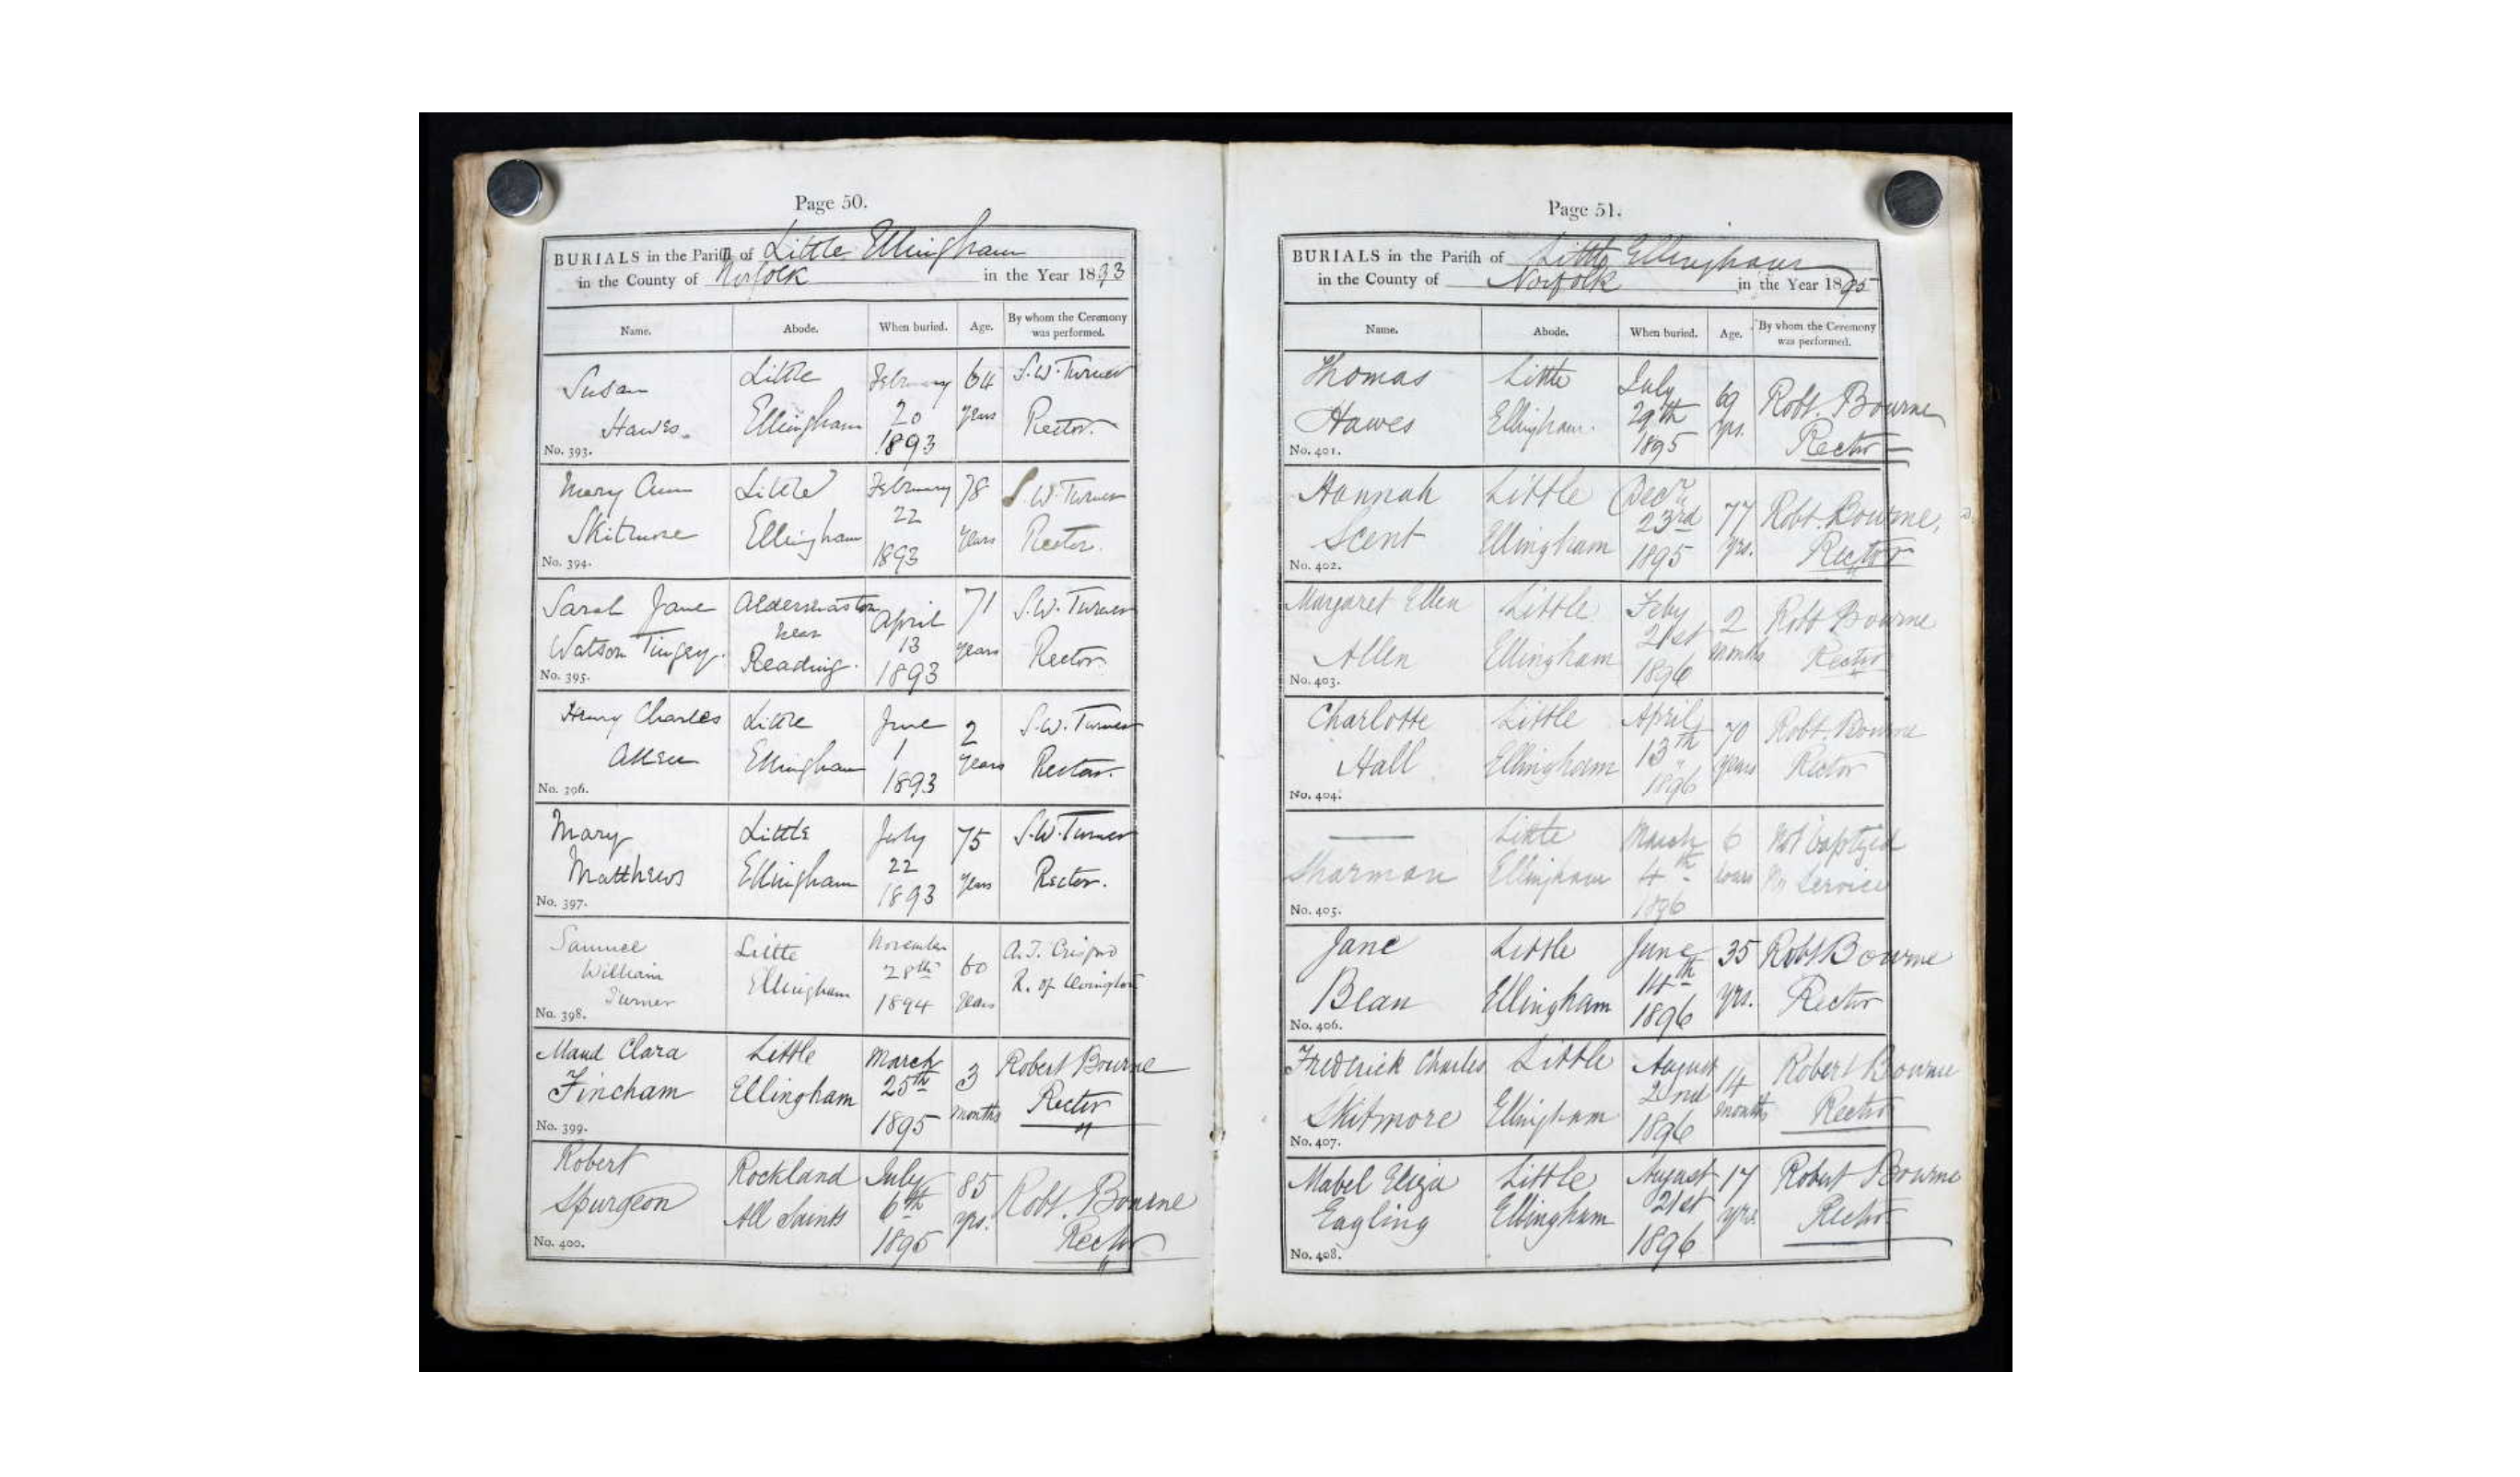 Page 50.
BURIALS in the Parish of Little Ellingham
in the County of Norfolk in the Year 1893
Name. Abode. When buried. Age. By whom the Ceremony was performed.
Susan Little February 64 S.W. Turner
Hawes. Ellingham 20 years Rector.
No. 393. 1893
Mary Ann Little February 78 S.W. Turner
Skitmore Ellingham 22 years Rector.
No. 394. 1893
Sarah Jane Aldermaston April 71 S.W. Turner
near
Watson Tingey. Reading. 13 years Rector.
No. 395. 1893
Henry Charles Little June 2 S.W. Turner
Allen Ellingham 1 years Rector.
No. 396. 1893
Mary Little July 75 S.W. Turner
Matthews Ellingham 22 years Rector.
No. 397. 1893
Samuel Little November 60 A.J. Crisp
William Ellingham 28th years R. of Ovington
Turner 1894
No. 398.
Maud Clara Little March 3 Robert Bourne
Fincham Ellingham 25th months Rector
No. 399. 1895
Robert Rockland July 85 Robt. Bourne
Spurgeon All Saints 6th yrs. Rector
No. 400. 1895
Page 51.
BURIALS in the Parish of Little Ellingham
in the County of Norfolk in the Year 1895
Name. Abode. When buried. Age. By whom the Ceremony was performed.
Thomas Little July 69 Robt. Bourne
Hawes Ellingham. 29th yrs. Rector
No. 401. 1895
Hannah Little Decr 77 Robt. Bourne,
Scent Ellingham 23rd yrs. Rector
No. 402. 1895
Margaret Ellen Little Feby 2 Robt Bourne
Allen Ellingham 21st months Rector
No. 403. 1896
Charlotte Little April 70 Robt. Bourne
Hall Ellingham 13th years Rector
No. 404. 1896
Little March 6 Not baptized
Sharman Ellingham 4th hours No Service
No. 405. 1896
Jane Little June 35 Robt Bourne
Bean Ellingham 14th yrs. Rector
No. 406. 1896
Frederick Charles Little August 14 Robert Bourne
Skitmore Ellingham 2nd months Rector
No. 407. 1896
Mabel Eliza Little August 17 Robert Bourne
Eagling Ellingham 21st yrs. Rector
No. 408. 1896